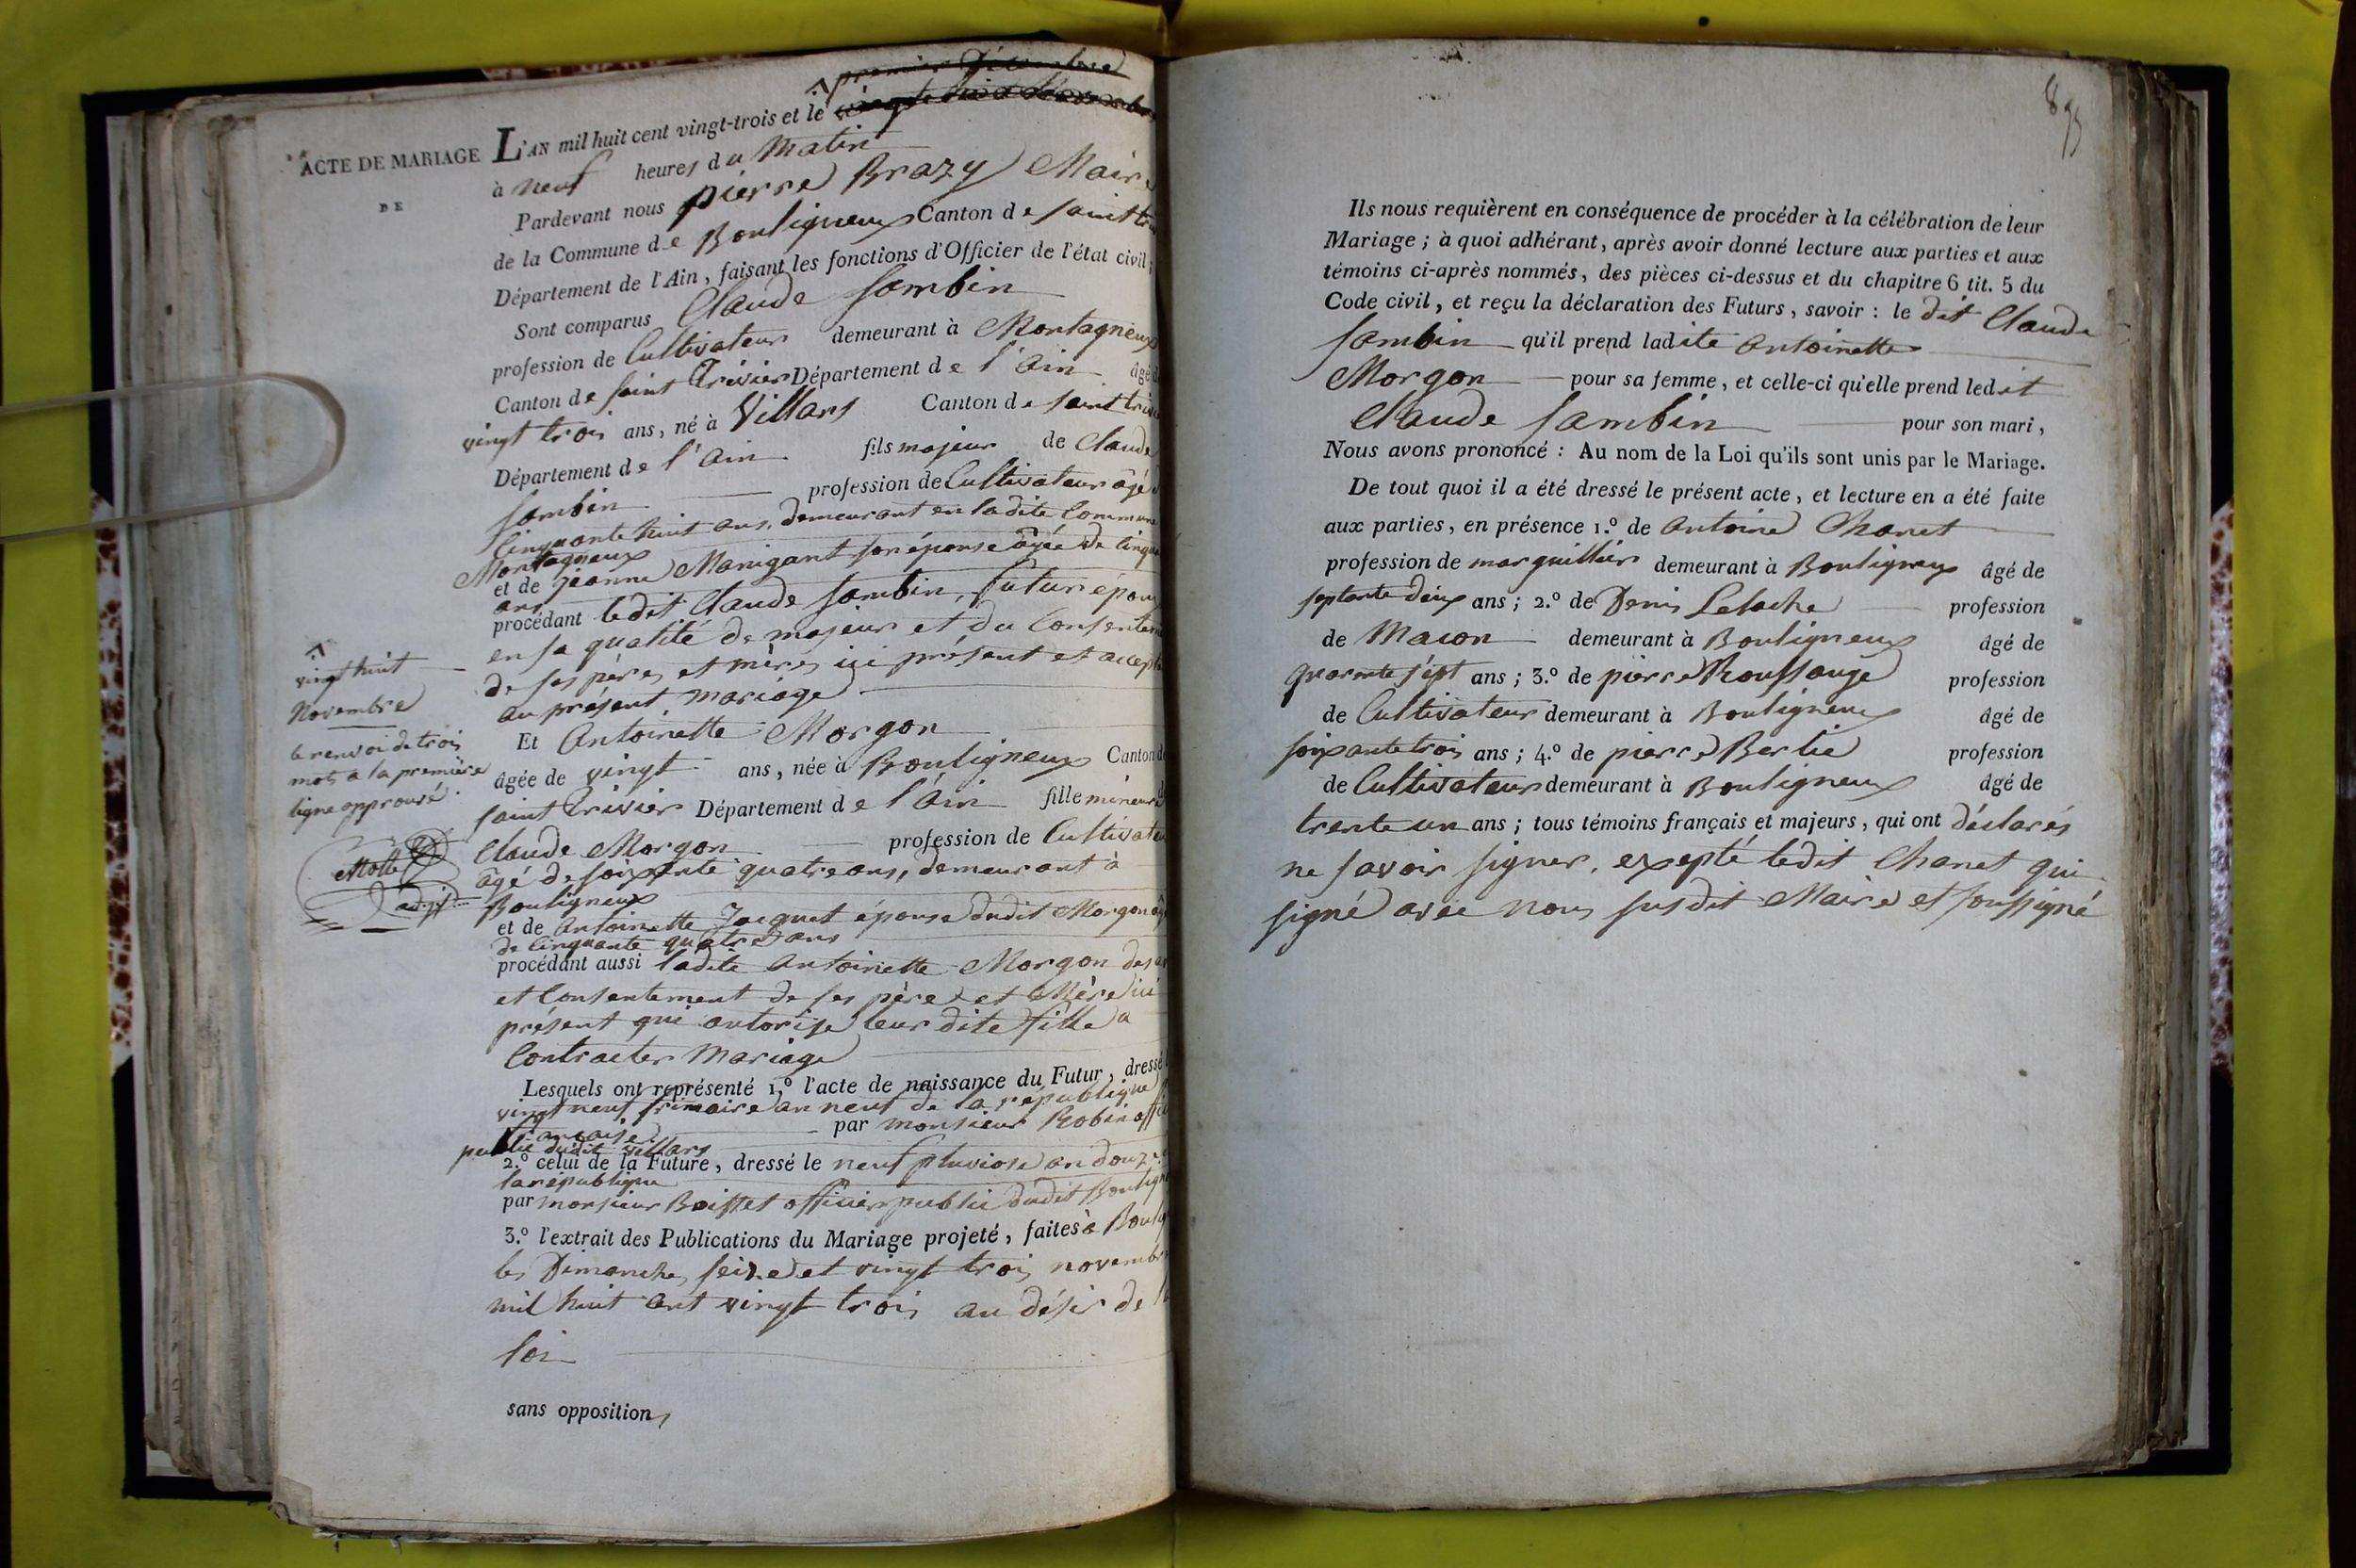 premier Décembre
ACTE DE MARIAGE
DE
L'AN mil huit cent vingt-trois et le vingt huit Novembre
à neuf heures du Matin
Pardevant nous pierre Brazy Maire
de la Commune de Bouligneux Canton de saint tri
Département de l'Ain, faisant les fonctions d'Officier de l'état civil;
Sont comparus Claude Sambin
profession de Cultivateur demeurant à Montagneux
Canton de saint Trivier Département de l'Ain âgé d
vingt trois ans, né à Villars Canton de saint trivi
Département de l'Ain fils majeur de Claude
Sambin profession de Cultivateur âgé d
Cinquante huit ans, demeurant en ladite Commune
Montagneux
et de jeanne Manigant son épouse âgée de Cinqu
ans
procédant ledit Claude Sambin, futur époux
en sa qualité de majeur et du Consentem
de ses père, et mère, ici présent et accept
au présent mariage
vingt huit
Novembre
le renvoi de trois
mots à la première
ligne approuvé.
Molle
adjt
Et Antoinette Morgon
âgée de vingt ans, née à Bouligneux Canton de
saint Trivier Département de l'Ain fille mineure d
Claude Morgon profession de Cultivateu
âgé de soixante quatre ans, demeurant à
Bouligneux
et de Antoinette Jacquet épouse dudit Morgon âg
de Cinquante quatre ans
procédant aussi ladite Antoinette Morgon des
et Consentement de ses père et Mère ici
présent qui autorise leur dite fille a
Contracter Mariage
Lesquels ont représenté 1.º l'acte de naissance du Futur, dressé l
vingt neuf frimaire an neuf de la république
française par monsieur Robin offi
public dudit villars
2.º celui de la Future, dressé le neuf pluviose an douze
la république
par monsieur Boisset officier public dudit Boulign
3.º l'extrait des Publications du Mariage projeté, faites à Boulig
les Dimanche, seize et vingt trois novembr
mil huit cent vingt trois au désir de l
loi
sans opposition,
893
Ils nous requièrent en conséquence de procéder à la célébration de leur
Mariage; à quoi adhérant, après avoir donné lecture aux parties et aux
témoins ci-après nommés, des pièces ci-dessus et du chapitre 6 tit. 5 du
Code civil, et reçu la déclaration des Futurs, savoir: le dit Claude
Sambin qu'il prend ladite Antoinette
Morgon pour sa femme, et celle-ci qu'elle prend ledit
Claude Sambin pour son mari,
Nous avons prononcé: Au nom de la Loi qu'ils sont unis par le Mariage.
De tout quoi il a été dressé le présent acte, et lecture en a été faite
aux parties, en présence 1.º de Antoine Chanet
profession de marguillier demeurant à Bouligneux âgé de
septante deux ans; 2.º de Denis Lelache profession
de Macon demeurant à Bouligneux âgé de
quarante sept ans; 3.º de pierre Roussange profession
de Cultivateur demeurant à Bouligneux âgé de
soixante trois ans; 4.º de pierre Berlie profession
de Cultivateur demeurant à Bouligneux âgé de
trente un ans; tous témoins français et majeurs, qui ont déclarés
ne savoir signer, expepté ledit Chanet qui
signé avec nous susdit Maire et soussigné